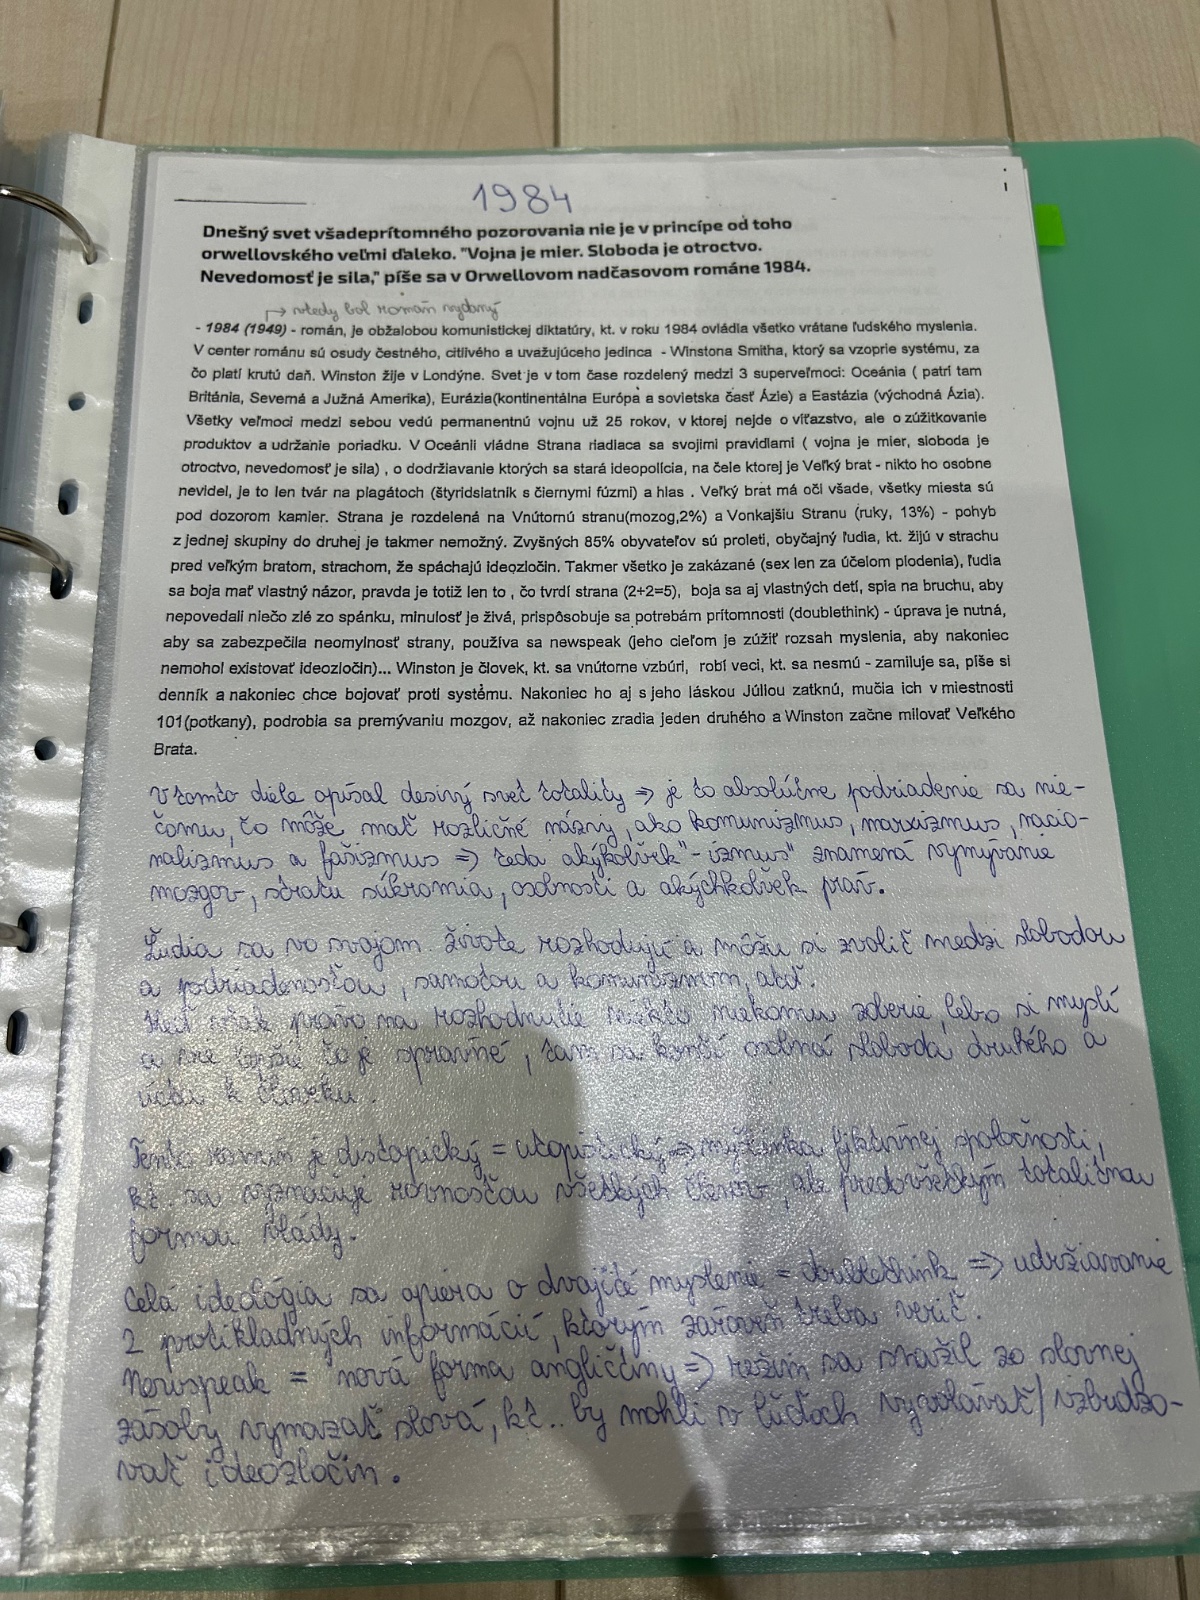 1984
Dnešný svet všadeprítomného pozorovania nie je v princípe od toho
orwellovského veľmi ďaleko. "Vojna je mier. Sloboda je otroctvo.
Nevedomosť je sila," píše sa v Orwellovom nadčasovom románe 1984.
→ vtedy bol román vydaný
- 1984 (1949) - román, je obžalobou komunistickej diktatúry, kt. v roku 1984 ovládla všetko vrátane ľudského myslenia.
V center románu sú osudy čestného, citlivého a uvažujúceho jedinca - Winstona Smitha, ktorý sa vzoprie systému, za
čo platí krutú daň. Winston žije v Londýne. Svet je v tom čase rozdelený medzi 3 superveľmoci: Oceánia ( patrí tam
Británia, Severná a Južná Amerika), Eurázia(kontinentálna Európa a sovietska časť Ázie) a Eastázia (východná Ázia).
Všetky veľmoci medzi sebou vedú permanentnú vojnu už 25 rokov, v ktorej nejde o víťazstvo, ale o zúžitkovanie
produktov a udržanie poriadku. V Oceánii vládne Strana riadiaca sa svojimi pravidlami ( vojna je mier, sloboda je
otroctvo, nevedomosť je sila) , o dodržiavanie ktorých sa stará ideopolícia, na čele ktorej je Veľký brat - nikto ho osobne
nevidel, je to len tvár na plagátoch (štyridsiatnik s čiernymi fúzmi) a hlas . Veľký brat má oči všade, všetky miesta sú
pod dozorom kamier. Strana je rozdelená na Vnútornú stranu(mozog,2%) a Vonkajšiu Stranu (ruky, 13%) - pohyb
z jednej skupiny do druhej je takmer nemožný. Zvyšných 85% obyvateľov sú proleti, obyčajný ľudia, kt. žijú v strachu
pred veľkým bratom, strachom, že spáchajú ideozločin. Takmer všetko je zakázané (sex len za účelom plodenia), ľudia
sa boja mať vlastný názor, pravda je totiž len to , čo tvrdí strana (2+2=5), boja sa aj vlastných detí, spia na bruchu, aby
nepovedali niečo zlé zo spánku, minulosť je živá, prispôsobuje sa potrebám prítomnosti (doublethink) - úprava je nutná,
aby sa zabezpečila neomylnosť strany, používa sa newspeak (jeho cieľom je zúžiť rozsah myslenia, aby nakoniec
nemohol existovať ideozločin)... Winston je človek, kt. sa vnútorne vzbúri, robí veci, kt. sa nesmú - zamiluje sa, píše si
denník a nakoniec chce bojovať proti systému. Nakoniec ho aj s jeho láskou Júliou zatknú, mučia ich v miestnosti
101(potkany), podrobia sa premývaniu mozgov, až nakoniec zradia jeden druhého a Winston začne milovať Veľkého
Brata.
V tomto diele opísal desivý svet totality ⇒ je to absolútne podriadenie sa nie-
čomu, čo môže mať rozličné názvy, ako komunizmus, marxizmus, nacio-
nalizmus a fašizmus ⇒ teda akýkoľvek "-izmus" znamená vymývanie
mozgov, stratu súkromia, osobnosti a akýchkoľvek práv.
Ľudia sa vo svojom živote rozhodujú a môžu si zvoliť medzi slobodou
a podriadenosťou, samotou a komunizmom, atď.
Keď však právo na rozhodnutie niekto niekomu zoberie, lebo si myslí
a vie lepšie čo je správne, tam sa končí osobná sloboda druhého a
úcta k človeku.
Tento román je distopický = utopistický ⇒ myšlienka fiktívnej spoločnosti,
kt. sa vyznačuje rovnosťou všetkých členov, ale predovšetkým totalitnou
formou vlády.
Celá ideológia sa opiera o dvojité myslenie = doublethink ⇒ udržiavanie
2 protikladných informácií, ktorým zároveň treba veriť.
Newspeak = nová forma angličtiny ⇒ režim sa snažil zo slovnej
zásoby vymazať slová, kt. by mohli v ľuďoch vyvolávať/vzbudzo-
vať ideozločin.